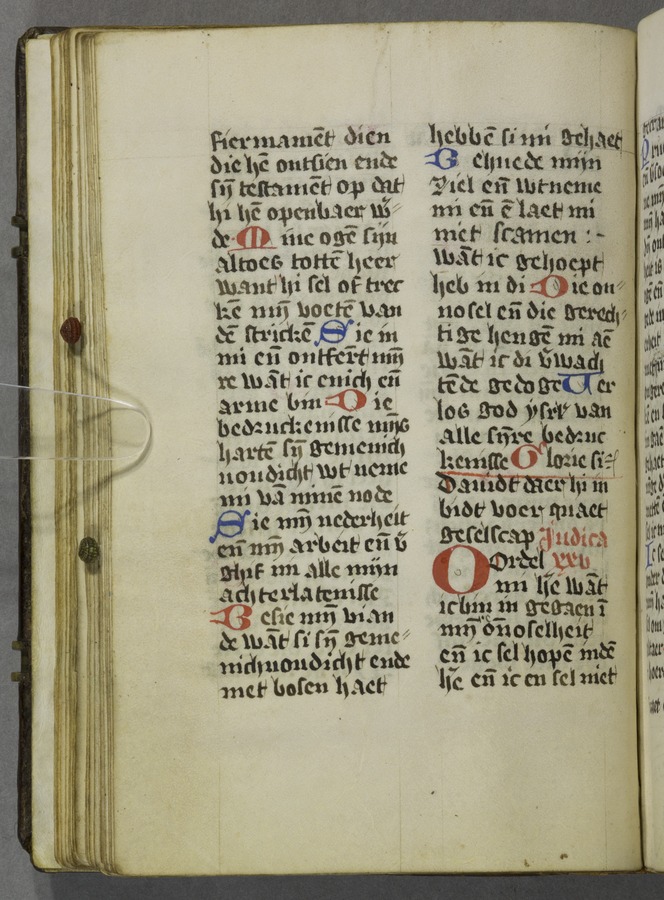 fiermamēt dien
die hē ontsien ende
sȳ testamēt op dat
hi hē openbaer w̄
de Mine ogē sijn
altoes tottē heer
want hi sel of trec
kē mȳ voetē van
dē strickē Sie in
mi eñ ontfert mȳ
re wāt ic enich eñ
arme bin Die
bedruckenisse mȳs
hartē sȳ gemenich
uoudicht wt neme
mi vā minē node
Sie mȳ nederheit
eñ mȳ arbeit eñ v̄
ghif mi alle mijn
achterlatenisse
Besie mȳ vian
de wāt si sȳ geme
nichuoudicht ende
met bosen haet
hebbē si mi gehaet
Behuede mijn
ziel eñ wtneme
mi eñ ē laet mi
niet scamen :-
wāt ic gehoept
heb in di Die on
nosel eñ die gerech
tige hengē mi aē
wāt ic di v̄wach
tēde gedoge Ver
los god ysrl' van
alle sijre bedruc
kenisse Glorie si
Dauidt daer hi in
bidt voer quaet
geselscap Judica
Oordel xxv
mi hē wāt
ic bin in gegaen ī
mȳ ōnoselheit
eñ ic sel hopē indē
hē eñ ic en sel niet